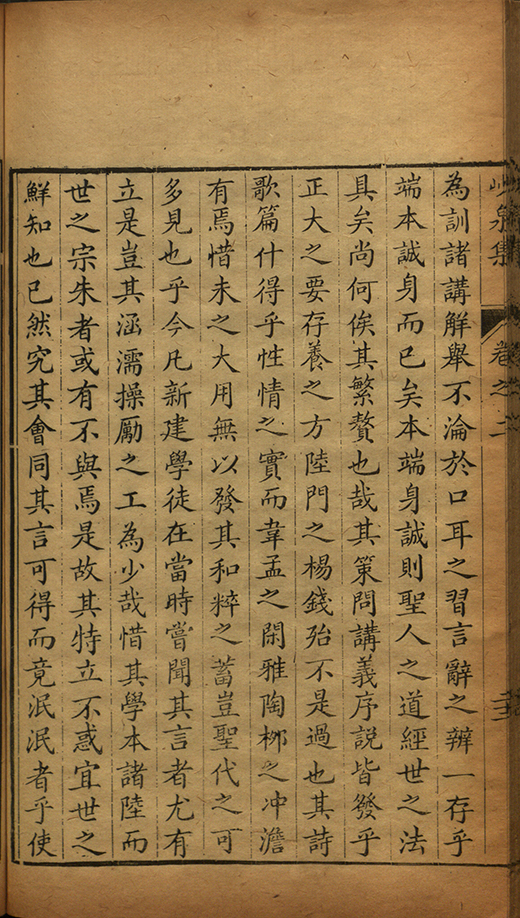 泉集
卷之二
為訓諸講解舉不淪於口耳之習言辭之辨一存乎
端本誠身而已矣本端身誠則聖人之道經世之法
具矣尚何俟其繁贅也哉其策問講義序說皆發乎
正大之要存養之方陸門之楊錢殆不是過也其詩
歌篇什得乎性情之實而韋孟之閑雅陶柳之冲澹
有焉惜未之大用無以發其和粹之蓄豈聖代之可
多見也乎今凡新建學徒在當時嘗聞其言者尤有
立是豈其涵濡操勵之工為少哉惜其學本諸陸而
世之宗朱者或有不與焉是故其特立不惑宜世之
鮮知也已然究其會同其言可得而竟泯泯者乎使